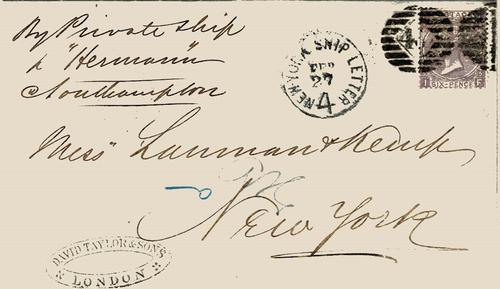 By Private Ship
p "Hermann"
Southampton
NEW-YORK SHIP LETTER
FEB
27
4
POSTAGE
SIX-PENCE
Mess Lanman & Kemp
New York
DAVID TAYLOR & SONS
LONDON